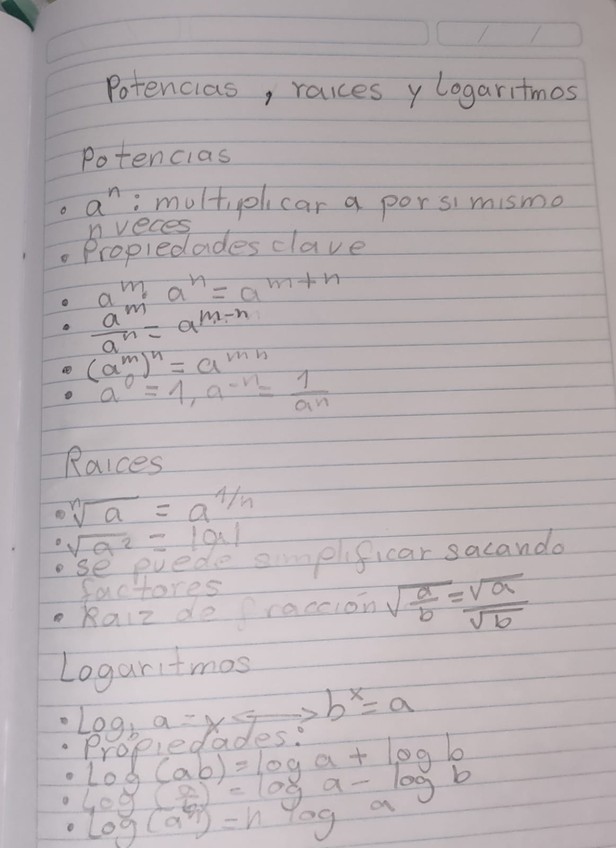 Potencias, raices y Logaritmos
Potencias
• aⁿ: multiplicar a por si mismo
n veces
• Propiedades clave
• a^m · a^n = a^(m+n)
• a^m / a^n = a^(m-n)
• (a^m)^n = a^(mn)
• a^0 = 1, a^(-n) = 1/a^n
Raices
• ⁿ√a = a^(1/n)
• √a² = |a|
• se puede simplificar sacando
factores
• Raiz de fracción √(a/b) = √a/√b
Logaritmos
• Log_b a = x ⟷ b^x = a
• Propiedades:
• Log (ab) = log a + log b
• Log (a/b) = log a - log b
• Log (a^n) = n log a